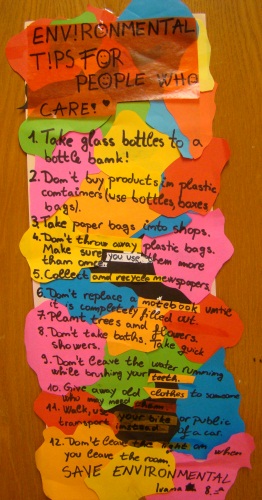 ENVIRONMENTAL
TIPS FOR
PEOPLE WHO
CARE!
1. Take glass bottles to a
bottle bank!
2. Don't buy products in plastic
containers (use bottles, boxes,
bags).
3. Take paper bags into shops.
4. Don't throw away plastic bags.
Make sure you use them more
than once.
5. Collect and recycle newspapers.
6. Don't replace a notebook until
it is completely filled out.
7. Plant trees and flowers.
8. Don't take baths. Take quick
showers.
9. Don't leave the water running
while brushing your teeth.
10. Give away old clothes to someone
who may need them
11. Walk, use your bike or public
transport instead of a car.
12. Don't leave the light on when
you leave the room.
SAVE ENVIRONMENTAL
Ivana 8.